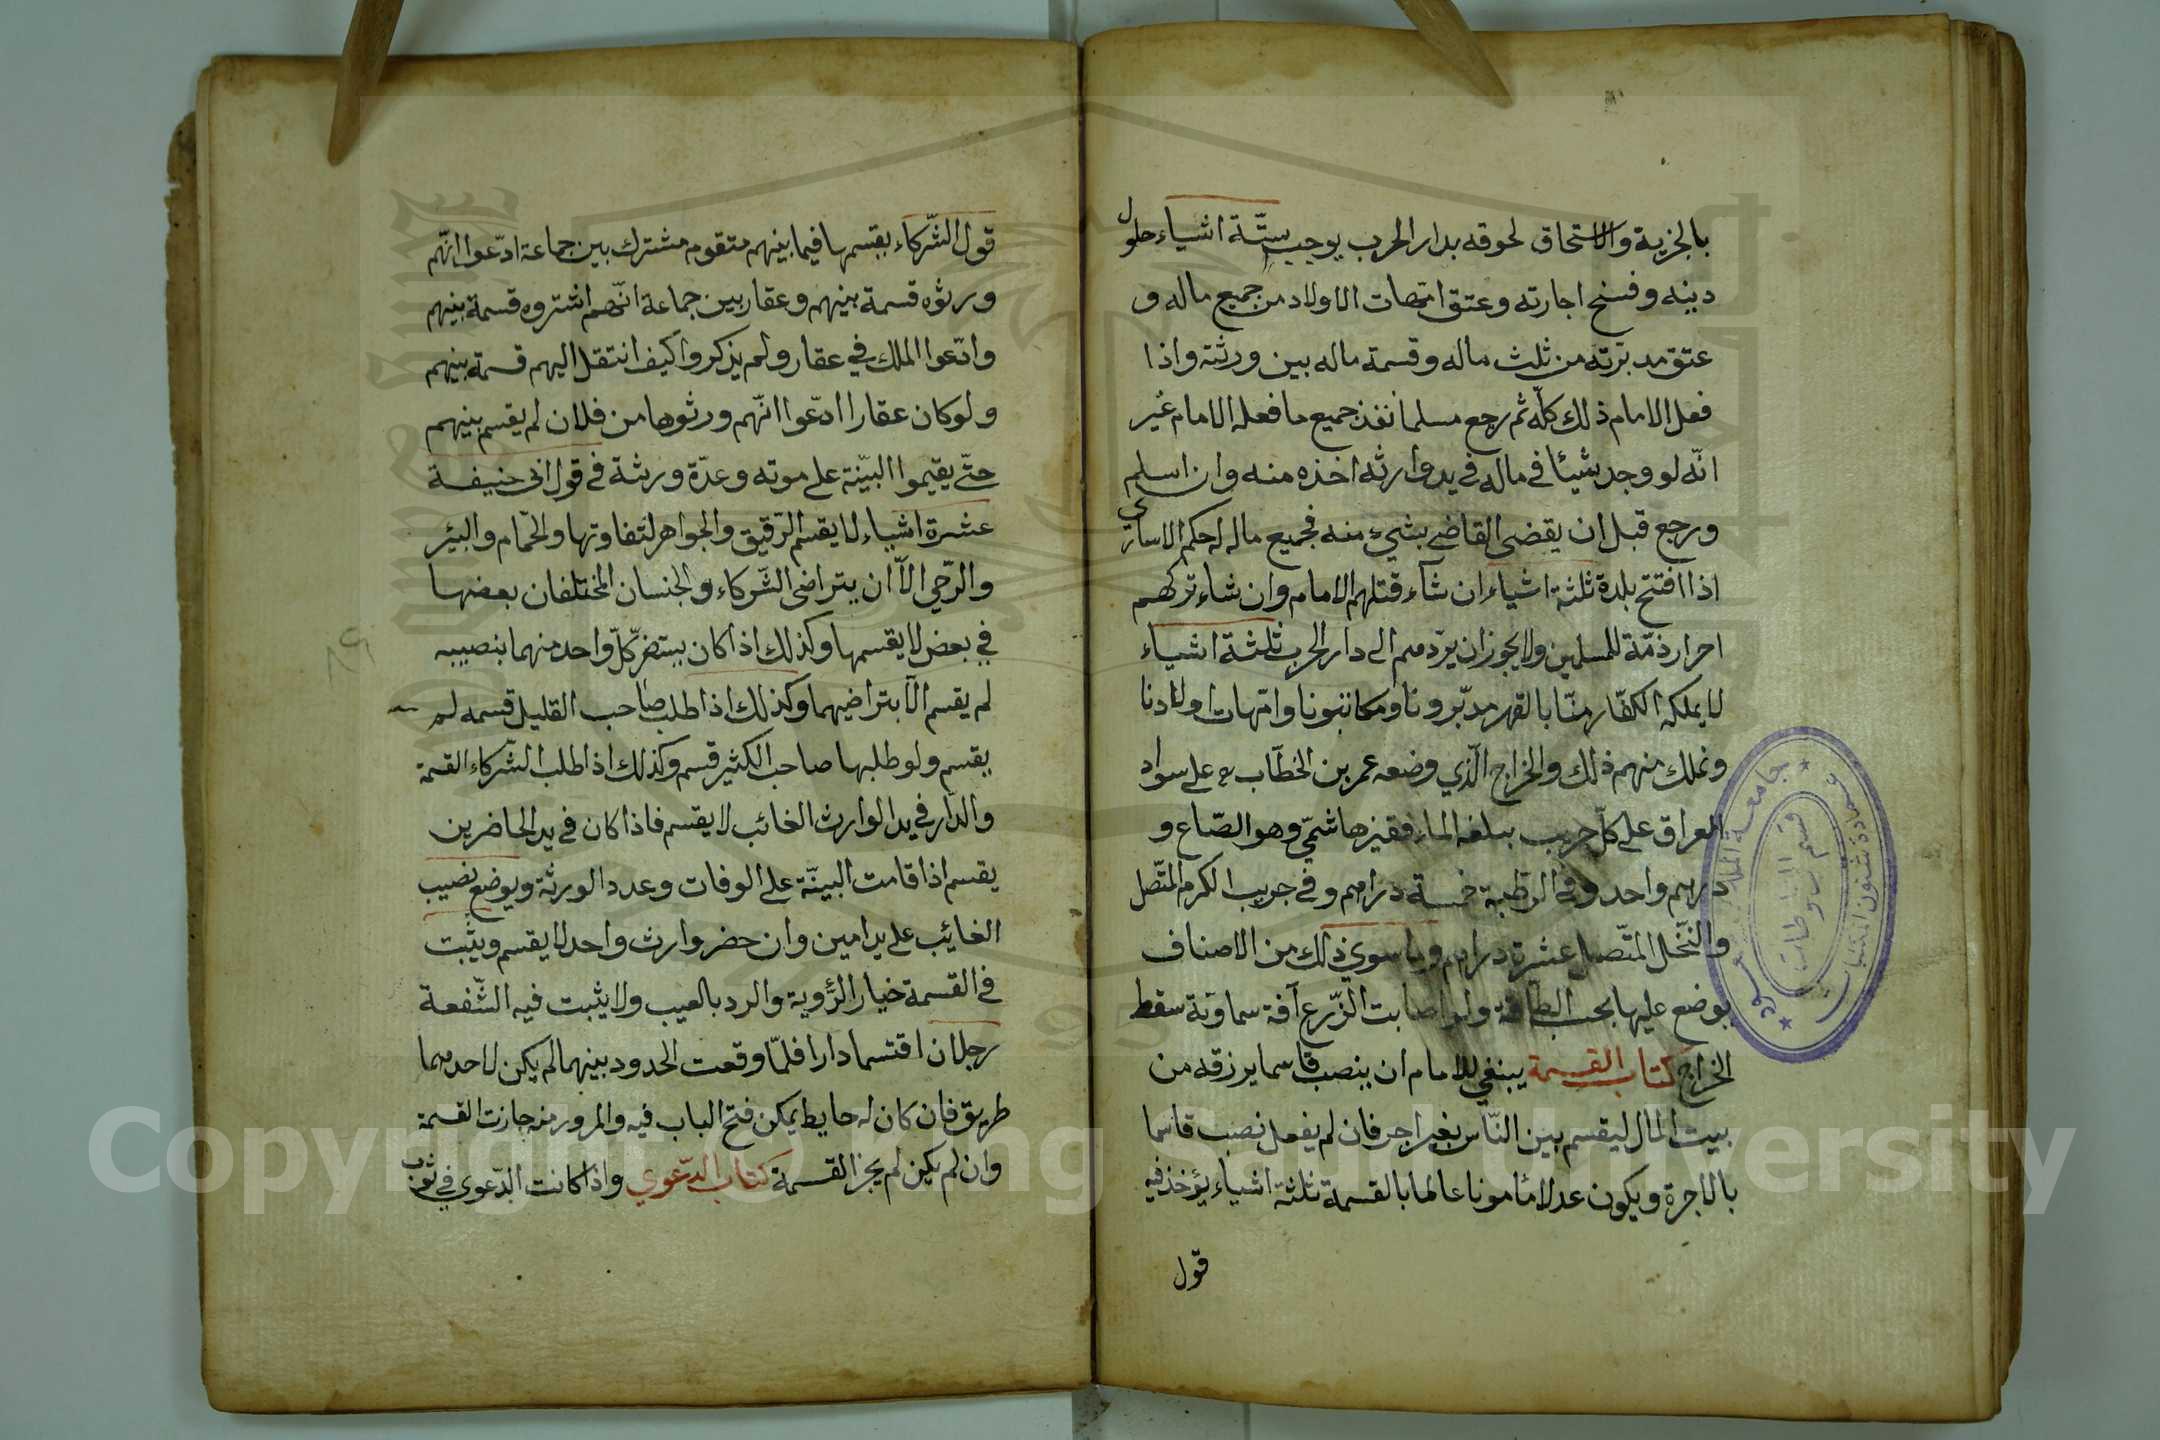 بالجزية والاستحاق لحوقه بدار الحرب يوجب ستّة اشياء حلول
دينه وفسخ اجارته وعتق امّهات الاولاد من جميع ماله و
عتق مدبّرته من ثلث ماله وقسمة ماله بين ورثته واذا
فعل الامام ذلك كلّه ثم رجع مسلما نفذ جميع ما فعله الامام غير
انّه لو وجد شيئا في ماله في يد وارثه اخذه منه وان اسلم
ورجع قبل ان يقضى القاضي بشيء منه فجميع ماله له حكم الاسارى
اذا افتتح بلدة ثلثة اشياء ان شآء قتلهم الامام وان شاء تركهم
احرار ذمّة للمسلمين ولا يجوز ان يردّهم الى دار الحرب ثلثة اشياء
لا يملكه الكفّار منّا بالقهر مدبّرونا ومكاتبونا وامّهات اولادنا
ونملك منهم ذلك والخراج الّذي وضعه عمر بن الخطّاب على سواد
العراق على كلّ جريب يبلغه الماء قفيز هاشميّ وهو الصّاع و
درهم واحد وفي الرّطبة خمسة دراهم وفي جريب الكرم المتّصل
والنّخل المتّصل عشرة دراهم وما سوى ذلك من الاصناف
يوضع عليها بحسب الطّاقة ولو اصابت الزّرع آفة سماويّة سقط
الخراج كتاب القسمة ينبغي للامام ان ينصب قاسما يرزقه من
بيت المال ليقسم بين النّاس بغير اجر فان لم يفعل نصب قاسما
بالاجرة ويكون عدلا مأمونا عالما بالقسمة ثلثة اشياء يؤخذ فيه
قول
قول الشّركاء يقسمها فيما بينهم متقوم مشترك بين جماعة ادّعوا انّهم
ورثوه قسمة بينهم وعقار بين جماعة انّهم اشتروه قسمة بينهم
وادّعوا الملك في عقار ولم يذكروا كيف انتقل اليهم قسمة بينهم
ولو كان عقارا ادّعوا انّهم ورثوها من فلان لم يقسم بينهم
حتّى يقيموا البيّنة على موته وعدّة ورثة في قول ابى حنيفة
عشرة اشياء لا يقسم الرّقيق والجواهر لتفاوتها والحمّام والبئر
والرّحي الاّ ان يتراضى الشّركاء والجنسان المختلفان بعضها
في بعض لا يقسمها وكذلك اذا كان يستضرّ كلّ واحد منهما بنصيبه
لم يقسم الاّ بتراضيهما وكذلك اذا طلب صاحب القليل قسمه لم
يقسم ولو طلبها صاحب الكثير قسم وكذلك اذا طلب الشّركاء القسمة
والدّار في يد الوارث الغائب لا يقسم فاذا كان في يد الحاضرين
يقسم اذا قامت البيّنة على الوفات وعدد الورثة ويوضع نصيب
الغائب على يد امين وان حضر وارث واحد لا يقسم ويثبت
في القسمة خيار الرّؤية والرد بالعيب ولا يثبت فيه الشّفعة
رجلان اقتسما دارا فلمّا وقعت الحدود بينهما لم يكن لاحدهما
طريق فان كان له حايط يمكن فتح الباب فيه والمرور منه جازت القسمة
وان لم يكن لم يجز القسمة كتاب الدّعوي واذا كانت الدّعوى في ثوب
جامعة الملك سعود
عمادة شئون المكتبات
قسم المخطوطات
Copyright © King Saud University